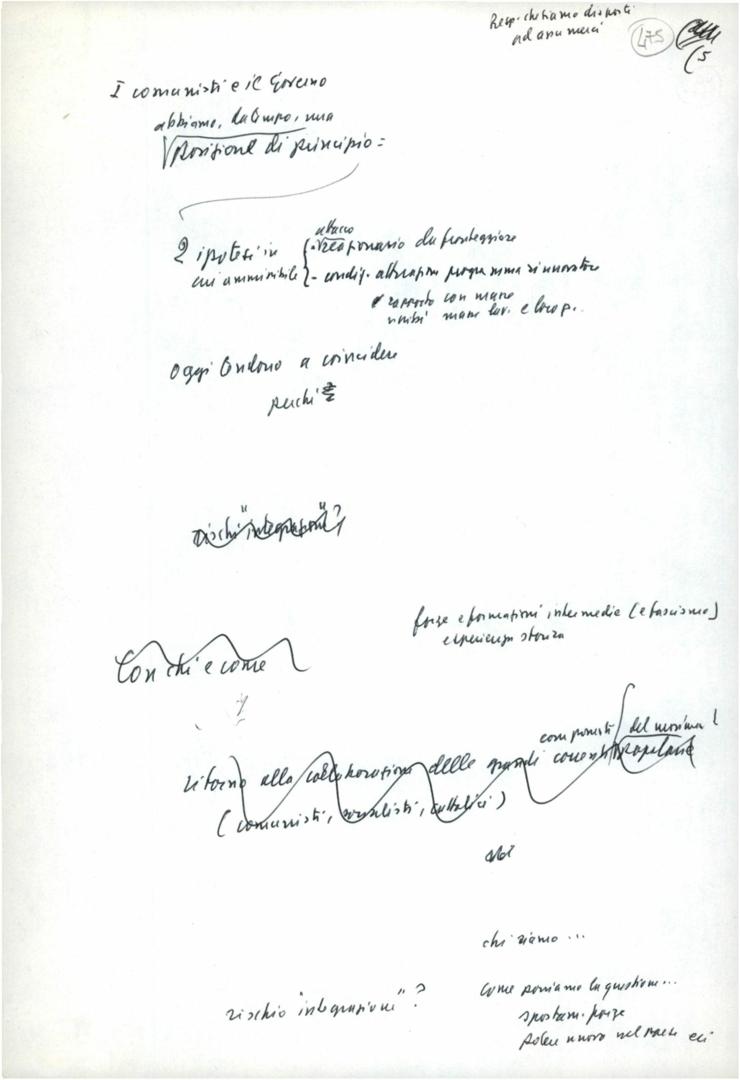 Resp. che siamo disposti
ad assumerci
475
I comunisti e il Governo
abbiamo, da tempo, una
posizione di principio =
2 ipotesi in
cui ammissibile
attacco
- reazionario da fronteggiare
- condiz. attuazione programma rinnovatore
rapporto con masse
unità masse lav. e
Oggi tendono a coincidere
perché
rischi "integrazione"?
forze e formazioni intermedie (e fascismo)
esperienza storica
Con chi e come
componenti del movim.
ritorno alla collaborazione delle grandi correnti popolari
(comunisti, socialisti, cattolici)
noi
chi siamo ...
come poniamo la questione...
rischio "integrazione"?
spostam. forze
potere nuovo nel paese ecc